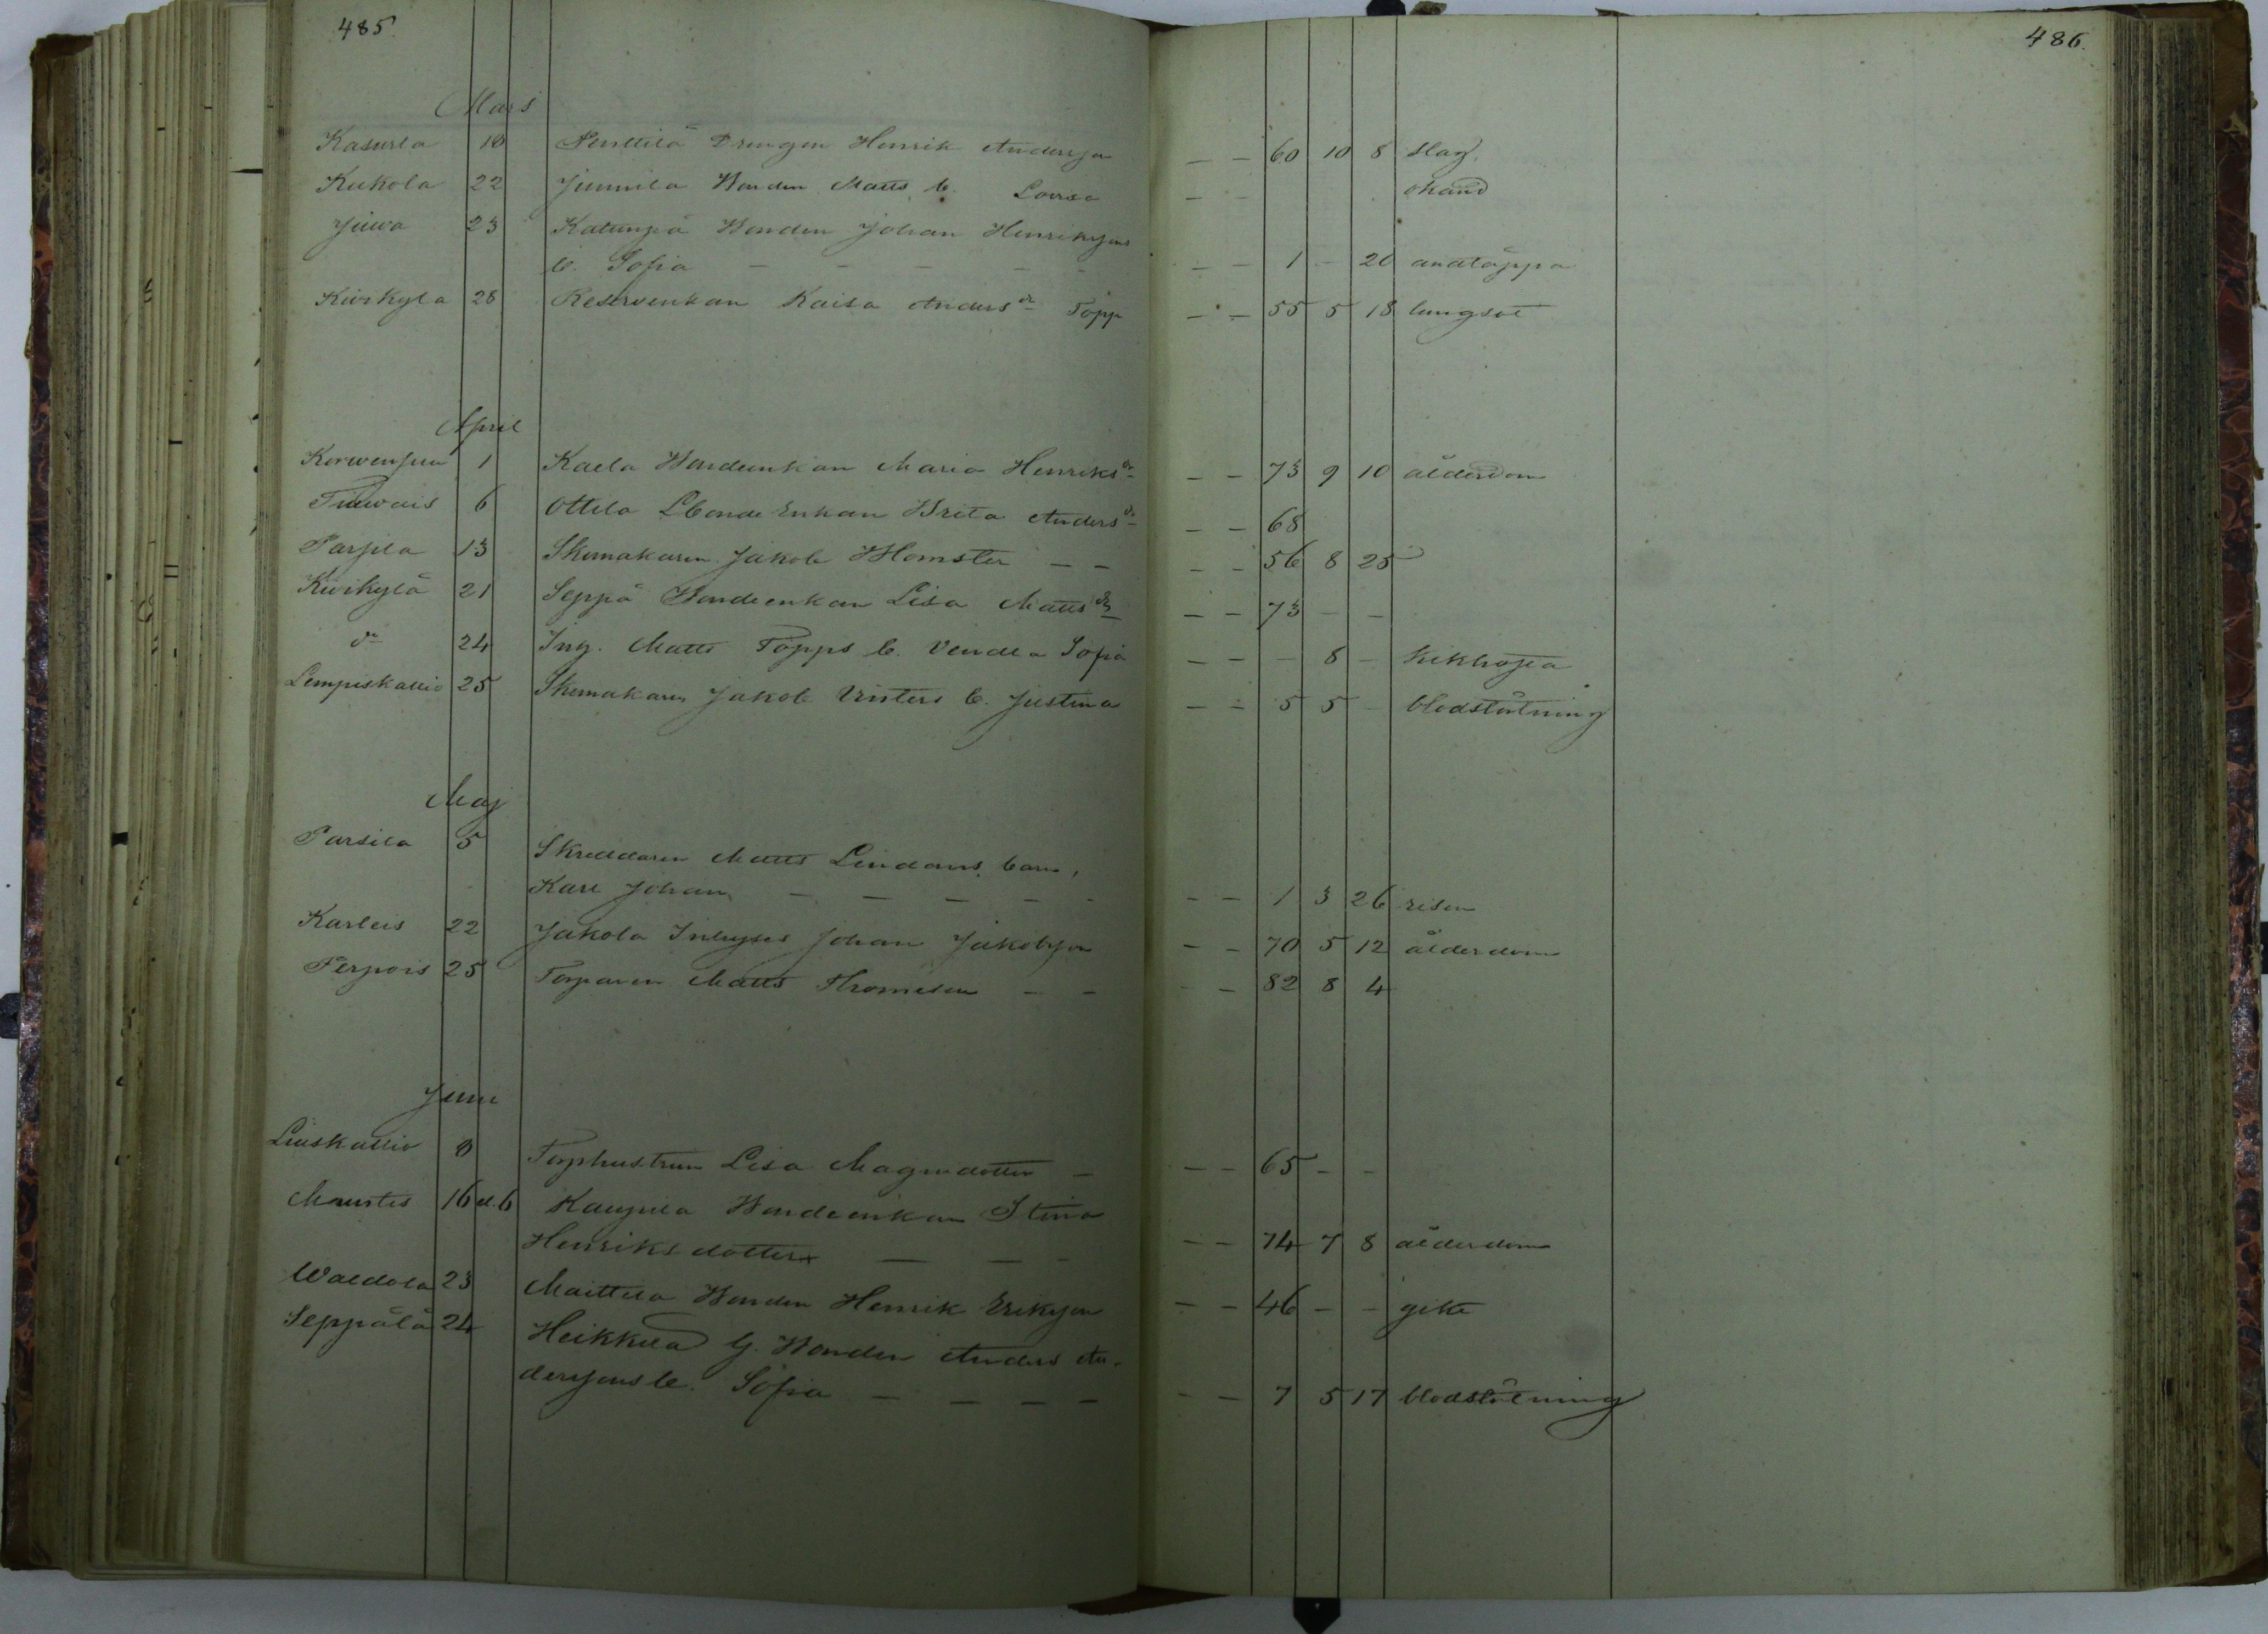 485.
486.
Mars
Kasurla 18 Penttilä Drengen Henrik Andersson — — 60 10 8 slag.
Kukola 22 Junnila Bonden Matts b. Lovisa — — okänd
Juva 23 Katunpä Bonden Johan Henrikssons
b. Sofia — — — — — — — 1 — 20 andtäppa
Kivikyla 28 Reservenkan Kaisa Andersdr Topp — — 55 5 18 lungsot
April
Korwenpää 1 Kaela Bondeenkan Maria Henriksdr — — 73 9 10 ålderdom
6 Ottila Lbonde Enkan Brita Andersdr — — 68
Parsila 13 Skomakaren Jakob Blomster — — — — 56 8 25
Kivikylä 21 Seppä Bondeenkan Lisa Mattsdr — — 73 — —
do 24 Inh. Matts Topps b. Vendla Sofia — — — 8 — kikhosta
Lempiskallio 25 Skomakaren Jakob Vinters b. Justina — — 5 5 — blodstörtning
Maj
Parsila 5 Skreddaren Matts Lindans barn,
Karl Johan — — — — — — — 1 3 26 risen
Karleis 22 Jakola Inhyses Johan Jakobsson — — 70 5 12 ålderdom
Perpois 25 Torparen Matts Thomisson — — — — 82 8 4
Juni
Liuskallio 8 Torphustrun Lisa Magnidotter — — — 65 — —
Maustis 16 d. 6 Kaupila Bondeenkan Stina
Henriksdotter — — — — — 74 7 8 ålderdom
Waldola 23 Maittila Bonden Henrik Eriksson — — 46 — — gikt
Seppälä 24 Heikkilä G. Bonden Anders An-
derssons b. Sofia — — — — — — 7 5 17 blodstörtning